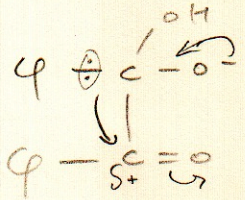 OH
φ – C – O –
φ – C = O
δ+